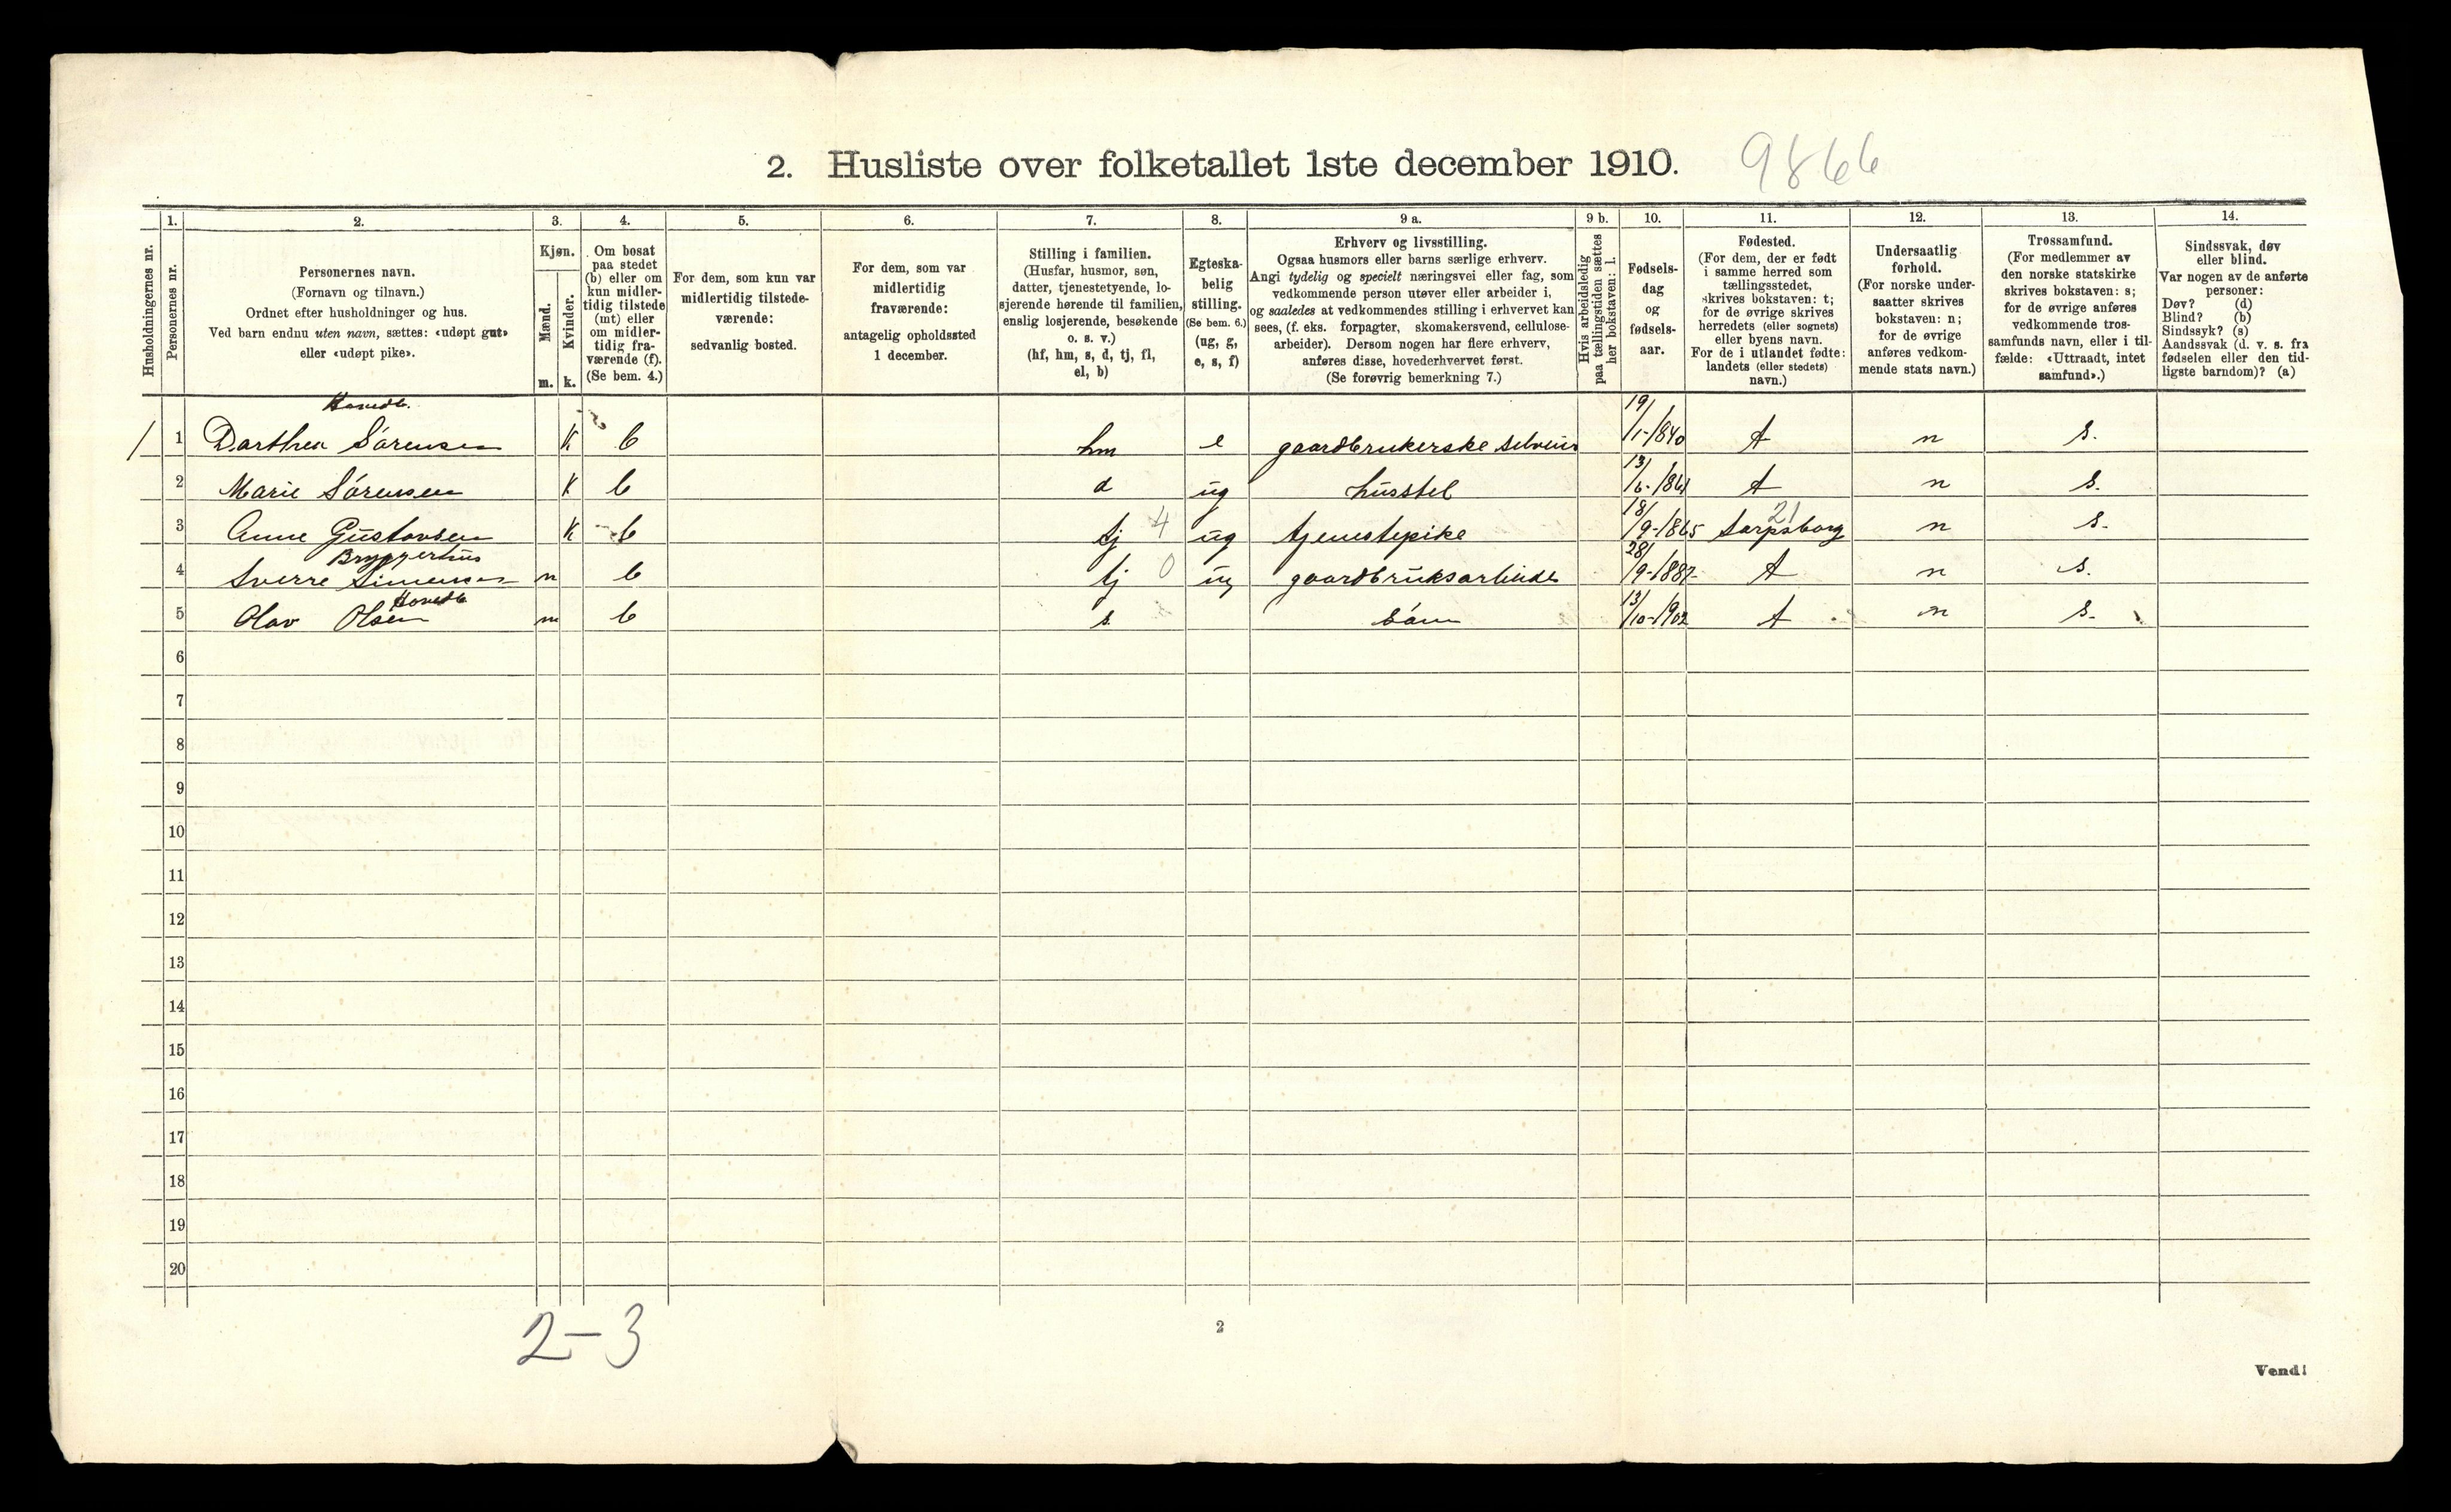 2. Husliste over folketallet 1ste december 1910. 9866
1. 2. 3. 4. 5. 6. 7. 8. 9 a. 9 b. 10. 11. 12. 13. 14.
Husholdningernes nr.
Personernes nr.
Personernes navn.
(Fornavn og tilnavn.)
Ordnet efter husholdninger og hus.
Ved barn endnu uten navn, sættes: «udøpt gut»
eller «udøpt pike».
Kjøn.
Mænd.
Kvinder.
m. k.
Om bosat
paa stedet
(b) eller om
kun midler-
tidig tilstede
(mt) eller
om midler-
tidig fra-
værende (f).
(Se bem. 4.)
For dem, som kun var
midlertidig tilstede-
værende:
sedvanlig bosted.
For dem, som var
midlertidig
fraværende:
antagelig opholdssted
1 december.
Stilling i familien.
(Husfar, husmor, søn,
datter, tjenestetyende, lo-
sjerende hørende til familien,
enslig losjerende, besøkende
o. s. v.)
(hf, hm, s, d, tj, fl,
el, b)
Egteska-
belig
stilling.
(Se bem. 6.)
(ug, g,
e, s, f)
Erhverv og livsstilling.
Ogsaa husmors eller barns særlige erhverv.
Angi tydelig og specielt næringsvei eller fag, som
vedkommende person utøver eller arbeider i,
og saaledes at vedkommendes stilling i erhvervet kan
sees, (f. eks. forpagter, skomakersvend, cellulose-
arbeider). Dersom nogen har flere erhverv,
anføres disse, hovederhvervet først.
(Se forøvrig bemerkning 7.)
Hvis arbeidsledig
paa tællingstiden sættes
her bokstaven: l.
Fødsels-
dag
og
fødsels-
aar.
Fødested.
(For dem, der er født
i samme herred som
tællingsstedet,
skrives bokstaven: t;
for de øvrige skrives
herredets (eller sognets)
eller byens navn.
For de i utlandet fødte:
landets (eller stedets)
navn.)
Undersaatlig
forhold.
(For norske under-
saatter skrives
bokstaven: n;
for de øvrige
anføres vedkom-
mende stats navn.)
Trossamfund.
(For medlemmer av
den norske statskirke
skrives bokstaven: s;
for de øvrige anføres
vedkommende tros-
samfunds navn, eller i til-
fælde: «Uttraadt, intet
samfund».)
Sindssvak, døv
eller blind.
Var nogen av de anførte
personer:
Døv? (d)
Blind? (b)
Sindssyk? (s)
Aandssvak (d. v. s. fra
fødselen eller den tid-
ligste barndom)? (a)
Hovedb.
1 1 Dorthea Sørensen K b hm e gaardbrukerske selveier 19/1-1840 t n s.
2 Marie Sørensen K b d ug husstel 13/6-1861 t n s.
3 Anne Gustavsen K b tj 4 ug tjenestepike 18/9-1865 Sarpsborg 21 n s.
Bryggerhus
4 Sverre Simensen m b tj 0 ug gaardbruksarbeide 28/9-1887 t n s.
Hovedb
5 Olav Olsen m b s. søn 13/10-1902 t n s.
6
7
8
9
10
11
12
13
14
15
16
17
18
19
20
2-3
2
Vend!